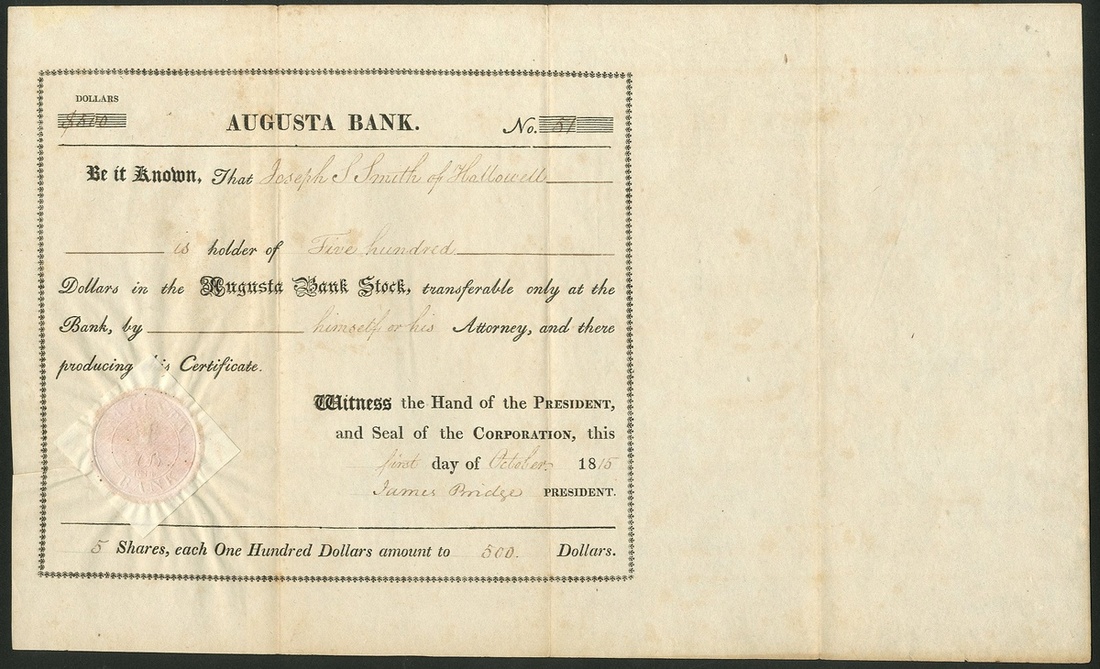 DOLLARS
$500
AUGUSTA BANK.
No. 51
Be it Known, That Joseph S Smith of Hallowell
is holder of Five hundred
Dollars in the Augusta Bank Stock, transferable only at the
Bank, by himself or his Attorney, and there
producing this Certificate.
Witness the Hand of the PRESIDENT,
and Seal of the CORPORATION, this
first day of October 1815
James Bridge PRESIDENT.
BANK
5 Shares, each One Hundred Dollars amount to 500. Dollars.